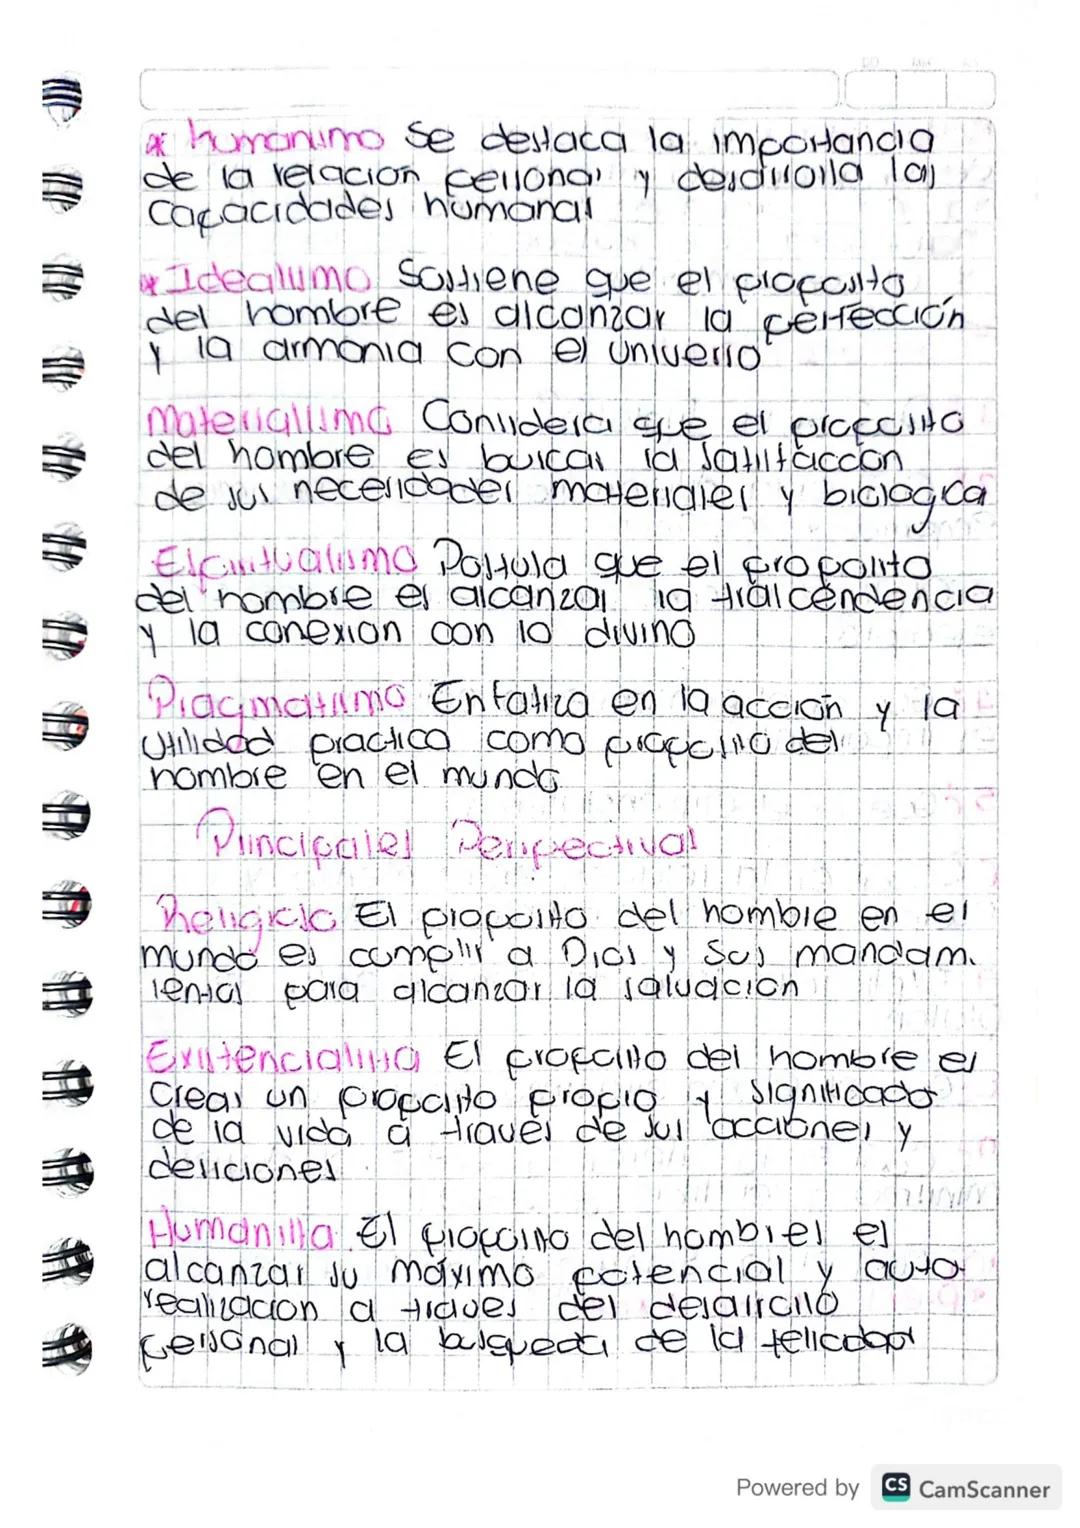 * humanismo Se destaca la importancia
de la relacion personal y desarrolla las
capacidades humanas
* Idealismo Sostiene que el proposito
del hombre es alcanzar la perfección
y la armonia con el universo
Materialismo Considera que el proposito
del hombre es buscar la satisfaccon
de sus necesidades materiales y biologica
Espiritualismo Postula que el proposito
del hombre es alcanzar la trascendencia
y la conexion con lo divino
Pragmatismo Enfatiza en la acción y la
utilidad practica como proposito del
hombre en el mundo
Principales Perspectivas
Religioso El proposito del hombre en el
mundo es cumplir a Dios y Sus mandam.
ientos para alcanzar la salvacion
Existencialista El proposito del hombre es
Crear un proposito propio y significado
de la vida a traves de sus acciones y
desiciones
Humanista El proposito del hombres es
alcanzar su máximo potencial y auto
realizacion a traves del desarrollo
personal y la busqueda de la felicidad
Powered by CS CamScanner